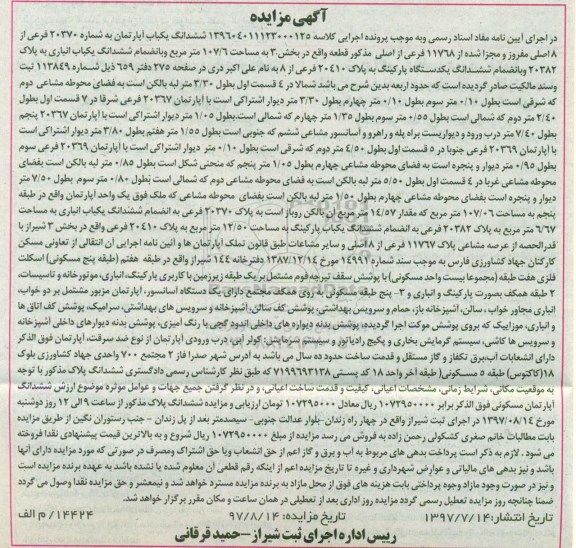 آگهی مزایده
در اجرای آیین نامه مفاد اسناد رسمی وبه موجب پرونده اجرایی کلاسه ۱۳۹۶۰۴۰۱۱۱۲۳۰۰۰۱۲۵ ششدانگ یکباب آپارتمان به شماره ۲۰۳۷۰ فرعی از
۸ اصلی مفروز و مجزا شده از ۱۱۷۶۸ فرعی از اصلی مذکور قطعه واقع در بخش ۳ به مساحت ۱۰۷/۶ متر مربع وبانضمام ششدانگ یکباب انباری به پلاک
۲۰۳۸۲ وبانضمام ششدانگ یکدستگاه پارکینگ به پلاک ۲۰۴۱۰ فرعی از ۸ به نام علی اکبر دری در صفحه ۲۷۵ دفتر ۶۵۹ ذیل شماره ۱۱۳۸۴۹ ثبت
وسند مالکیت صادر گردیده است که حدود اربعه بدین شرح می باشد شمالا در ۴ قسمت اول بطول ۳/۳۰ متر لبه بالکن است به فضای محوطه مشاعی دوم
که شرقی است بطول ۰/۱۰ متر سوم بطول ۰/۱۰ متر چهارم بطول ۳/۳۰ متر دیوار اشتراکی است با آپارتمان ۲۰۳۶۷ فرعی شرقا در ۷ قسمت اول بطول
۲/۴۰ متر دوم که شمالی است بطول ۰/۵۵ متر سوم بطول ۱/۳۵ متر چهارم که شمالی است بطول ۱/۰۵ متر دیوار اشتراکی است با آپارتمان ۲۰۳۶۷ پنجم
بطول ۷/۴۰ متر درب ورود و دیواریست براه پله و راهرو و آسانسور مشاعی ششم که جنوبی است بطول ۱/۵۵ متر هفتم بطول ۳/۸۰ متر دیوار اشتراکی است
با آپارتمان ۲۰۳۶۹ فرعی جنوبا در ۵ قسمت اول بطول ۴/۵۰ متر دوم که شرقی است بطول ۰/۱۰ متر دیوار اشتراکی است با آپارتمان ۲۰۳۶۹ فرعی سوم
بطول ۰/۹۵ متر دیوار و پنجره است به فضای محوطه مشاعی چهارم بطول ۱/۰۵ متر پنجم که منحنی شکل است بطول ۰/۸۵ متر لبه بالکن است بفضای
محوطه مشاعی غربا در ۴ قسمت اول بطول ۵/۵۰ متر لبه بالکن است به فضای محوطه مشاعی دوم که شمالی است بطول ۰/۸۰ متر سوم بطول ۷/۵۰ متر
دیوار و پنجره است بفضای محوطه مشاعی چهارم بطول ۱/۰۰ متر لبه بالکن است بفضای محوطه مشاعی که ملک فوق یک واحد آپارتمان واقع در طبقه
پنجم به مساحت ۱۰۷/۰۶ متر مربع که مقدار ۱۴/۵۷ متر مربع آن بالکن روباز است به پلاک ۲۰۳۷۰ فرعی به انضمام ششدانگ یکباب انباری به مساحت
۶/۶۷ متر مربع به پلاک ۲۰۳۸۲ فرعی به انضمام ششدانگ یکباب پارکینگ به مساحت ۱۲/۵۰ متر مربع به پلاک ۲۰۴۱۰ فرعی واقع در بخش ۳ شیراز با
قدرالحصه از عرصه مشاعی پلاک ۱۱۷۶۷ فرعی از ۸ اصلی و سایر مشاعات طبق قانون تملک آپارتمان ها و آئین نامه اجرایی آن انتقالی از تعاونی مسکن
کارکنان جهاد کشاورزی فارس به موجب سند شماره ۱۴۹۹۱ مورخ ۱۳۸۷/۱۲/۱۴ دفترخانه ۱۴۴ شیراز واقع در طبقه هفتم (طبقه پنج مسکونی) اسکلت
فلزی هفت طبقه (مجموعا بیست واحد مسکونی) با پوشش سقف تیرچه فوم مشتمل بر یک طبقه زیرزمین با کاربری پارکینگ، انباری، موتورخانه و تاسیسات،
۲ طبقه همکف بصورت پارکینگ و انباری و ۳- پنج طبقه مسکونی به روی همکف مجتمع دارای یک دستگاه آسانسور، آپارتمان مزبور مشتمل بر دو خواب،
انباری مجاور خواب، سالن، آشپزخانه باز، حمام و سرویس بهداشتی، پوشش کف سالن، آشپزخانه و سرویس های بهداشتی، سرامیک، پوشش کف اتاق ها
و انباری، موزاییک که بروی پوشش موکت اجرا گردیده، پوشش بدنه دیواره های داخلی اندود گچی با رنگ آمیزی، پوشش بدنه دیوارهای داخلی آشپزخانه
و سرویس ها کاشی، سیستم گرمایش بخاری و پکیج رادیاتور و سیستم سرمایش کولر آبی، درب ورودی آپارتمان از نوع ضد سرقت، آپارتمان فوق الذکر
دارای انشعابات آب، برق تکفاز و گاز مستقل و قدمت ساخت حدود ده سال می باشد به آدرس شهر صدرا فاز ۲ مجتمع ۷۰۰ واحدی جهاد کشاورزی بلوک
۱۸ (کاکتوس) طبقه ۵ مسکونی( طبقه آخر واحد ۱۸ کد پستی ۷۱۹۹۶۹۳۱۳۸ که طبق نظر کارشناس رسمی دادگستری ششدانگ پلاک مذکور با توجه
به موقعیت مکانی، شرایط زمانی، مشخصات اعیانی، کیفیت و قدمت ساخت اعیانی، و در نظر گرفتن جمیع جهات و عوامل موثره موضوع ارزش ششدانگ
آپارتمان مسکونی فوق الذکر برابر ۱۰۷۲۹۵۰۰۰۰ ریال معادل ۱۰۷۲۹۵۰۰۰ تومان ارزیابی و مزایده ششدانگ پلاک مذکور از ساعت ۹ الی ۱۲ روز دوشنبه
مورخ ۱۳۹۷/۰۸/۱۴ در اجرای ثبت شیراز واقع در چهار راه زندان -بلوار عدالت جنوبی- سیصدمتر بعد از پل زندان - جنب رستوران نگین از طریق مزایده
بابت مطالبات خانم صغری کشکولی رحمن زاده به فروش می رسد از مبلغ ۱۰۷۲۹۵۰۰۰۰ ریال شروع و به بالاترین قیمت پیشنهادی نقدا فروخته
می شود . لازم به ذکر است پرداخت بدهی های مربوط به آب و برق و گاز اعم از حق انشعاب ویا حق اشتراک ومصرف در صورتی که مورد مزایده دارای آنها
باشد و نیز بدهی های مالیاتی و عوارض شهرداری و غیره تا تاریخ مزایده اعم از اینکه رقم قطعی آن معلوم شده یا نشده باشد به عهده برنده مزایده است
و نیز در صورت وجود مازاد وجوه پرداختی بابت هزینه های فوق از محل مازاد به برنده مزایده مسترد خواهد شد و نیمعشر و حق مزایده نقدا وصول می گردد
ضمنا چنانچه روز مزایده تعطیل رسمی گردد مزایده روز اداری بعد از تعطیلی در همان ساعت و مکان مقرر برگزار خواهد شد.
تاریخ انتشار: ۱۳۹۷/۷/۱۴ تاریخ مزایده: ۹۷/۸/۱۴ ۱۴۴۲۴/م الف
رییس اداره اجرای ثبت شیراز-حمید فرقانی